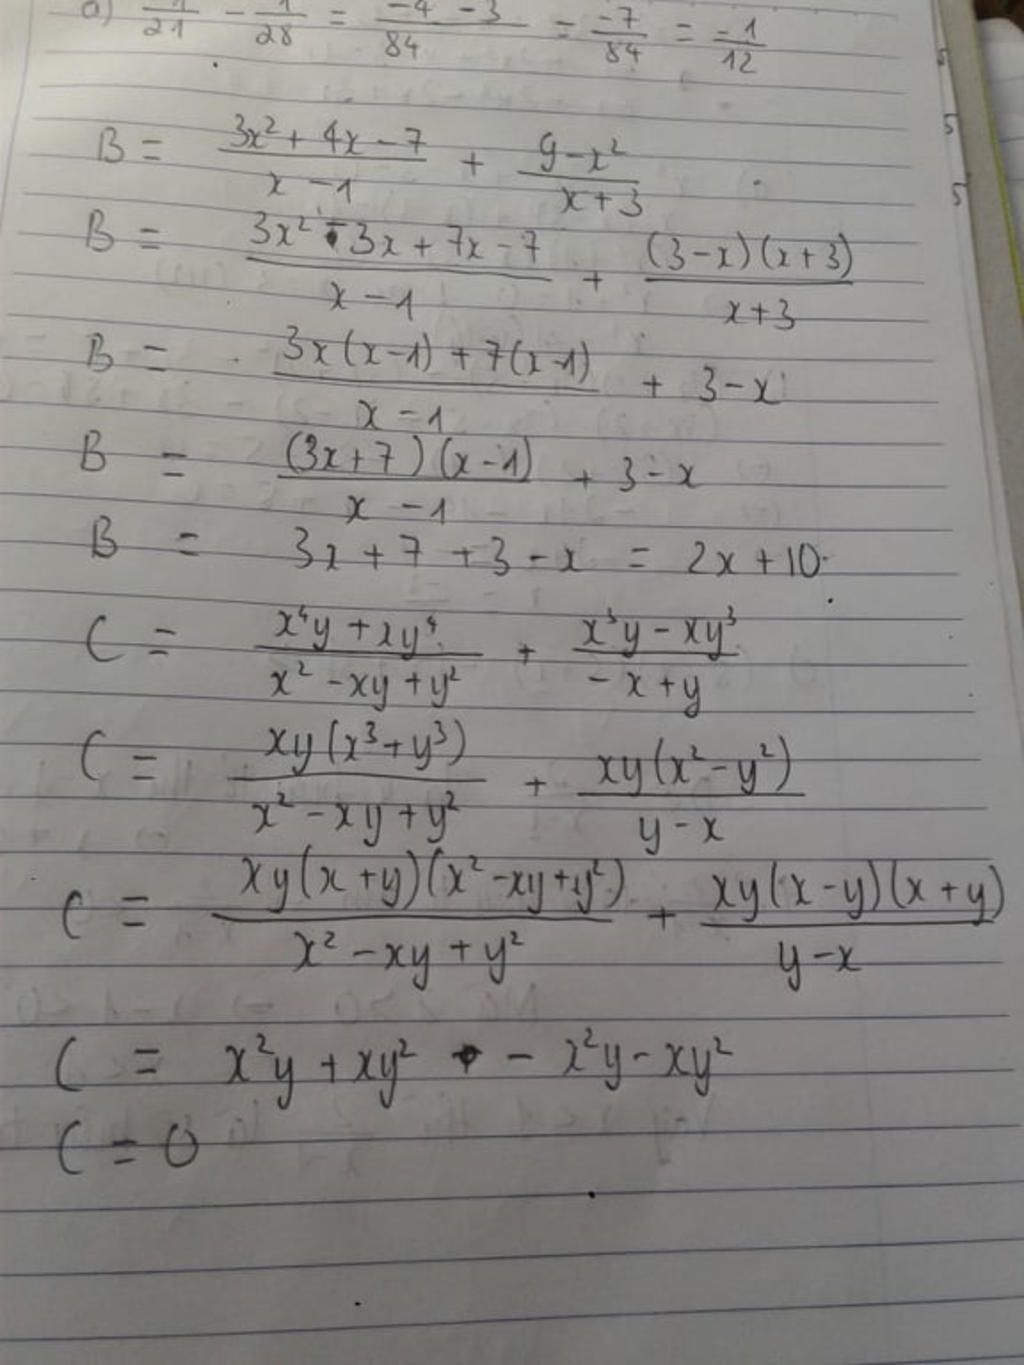 a) -1/21 - 1/28 = (-4 - 3)/84 = -7/84 = -1/12
B = (3x² + 4x - 7)/(x - 1) + (9 - x²)/(x + 3)
B = (3x² - 3x + 7x - 7)/(x - 1) + ((3 - x)(x + 3))/(x + 3)
B = (3x(x - 1) + 7(x - 1))/(x - 1) + 3 - x
B = ((3x + 7)(x - 1))/(x - 1) + 3 - x
B = 3x + 7 + 3 - x = 2x + 10.
C = (x⁴y + xy⁴)/(x² - xy + y²) + (x³y - xy³)/(-x + y)
C = (xy(x³ + y³))/(x² - xy + y²) + (xy(x² - y²))/(y - x)
C = (xy(x + y)(x² - xy + y²))/(x² - xy + y²) + (xy(x - y)(x + y))/(y - x)
C = x²y + xy² - x²y - xy²
C = 0